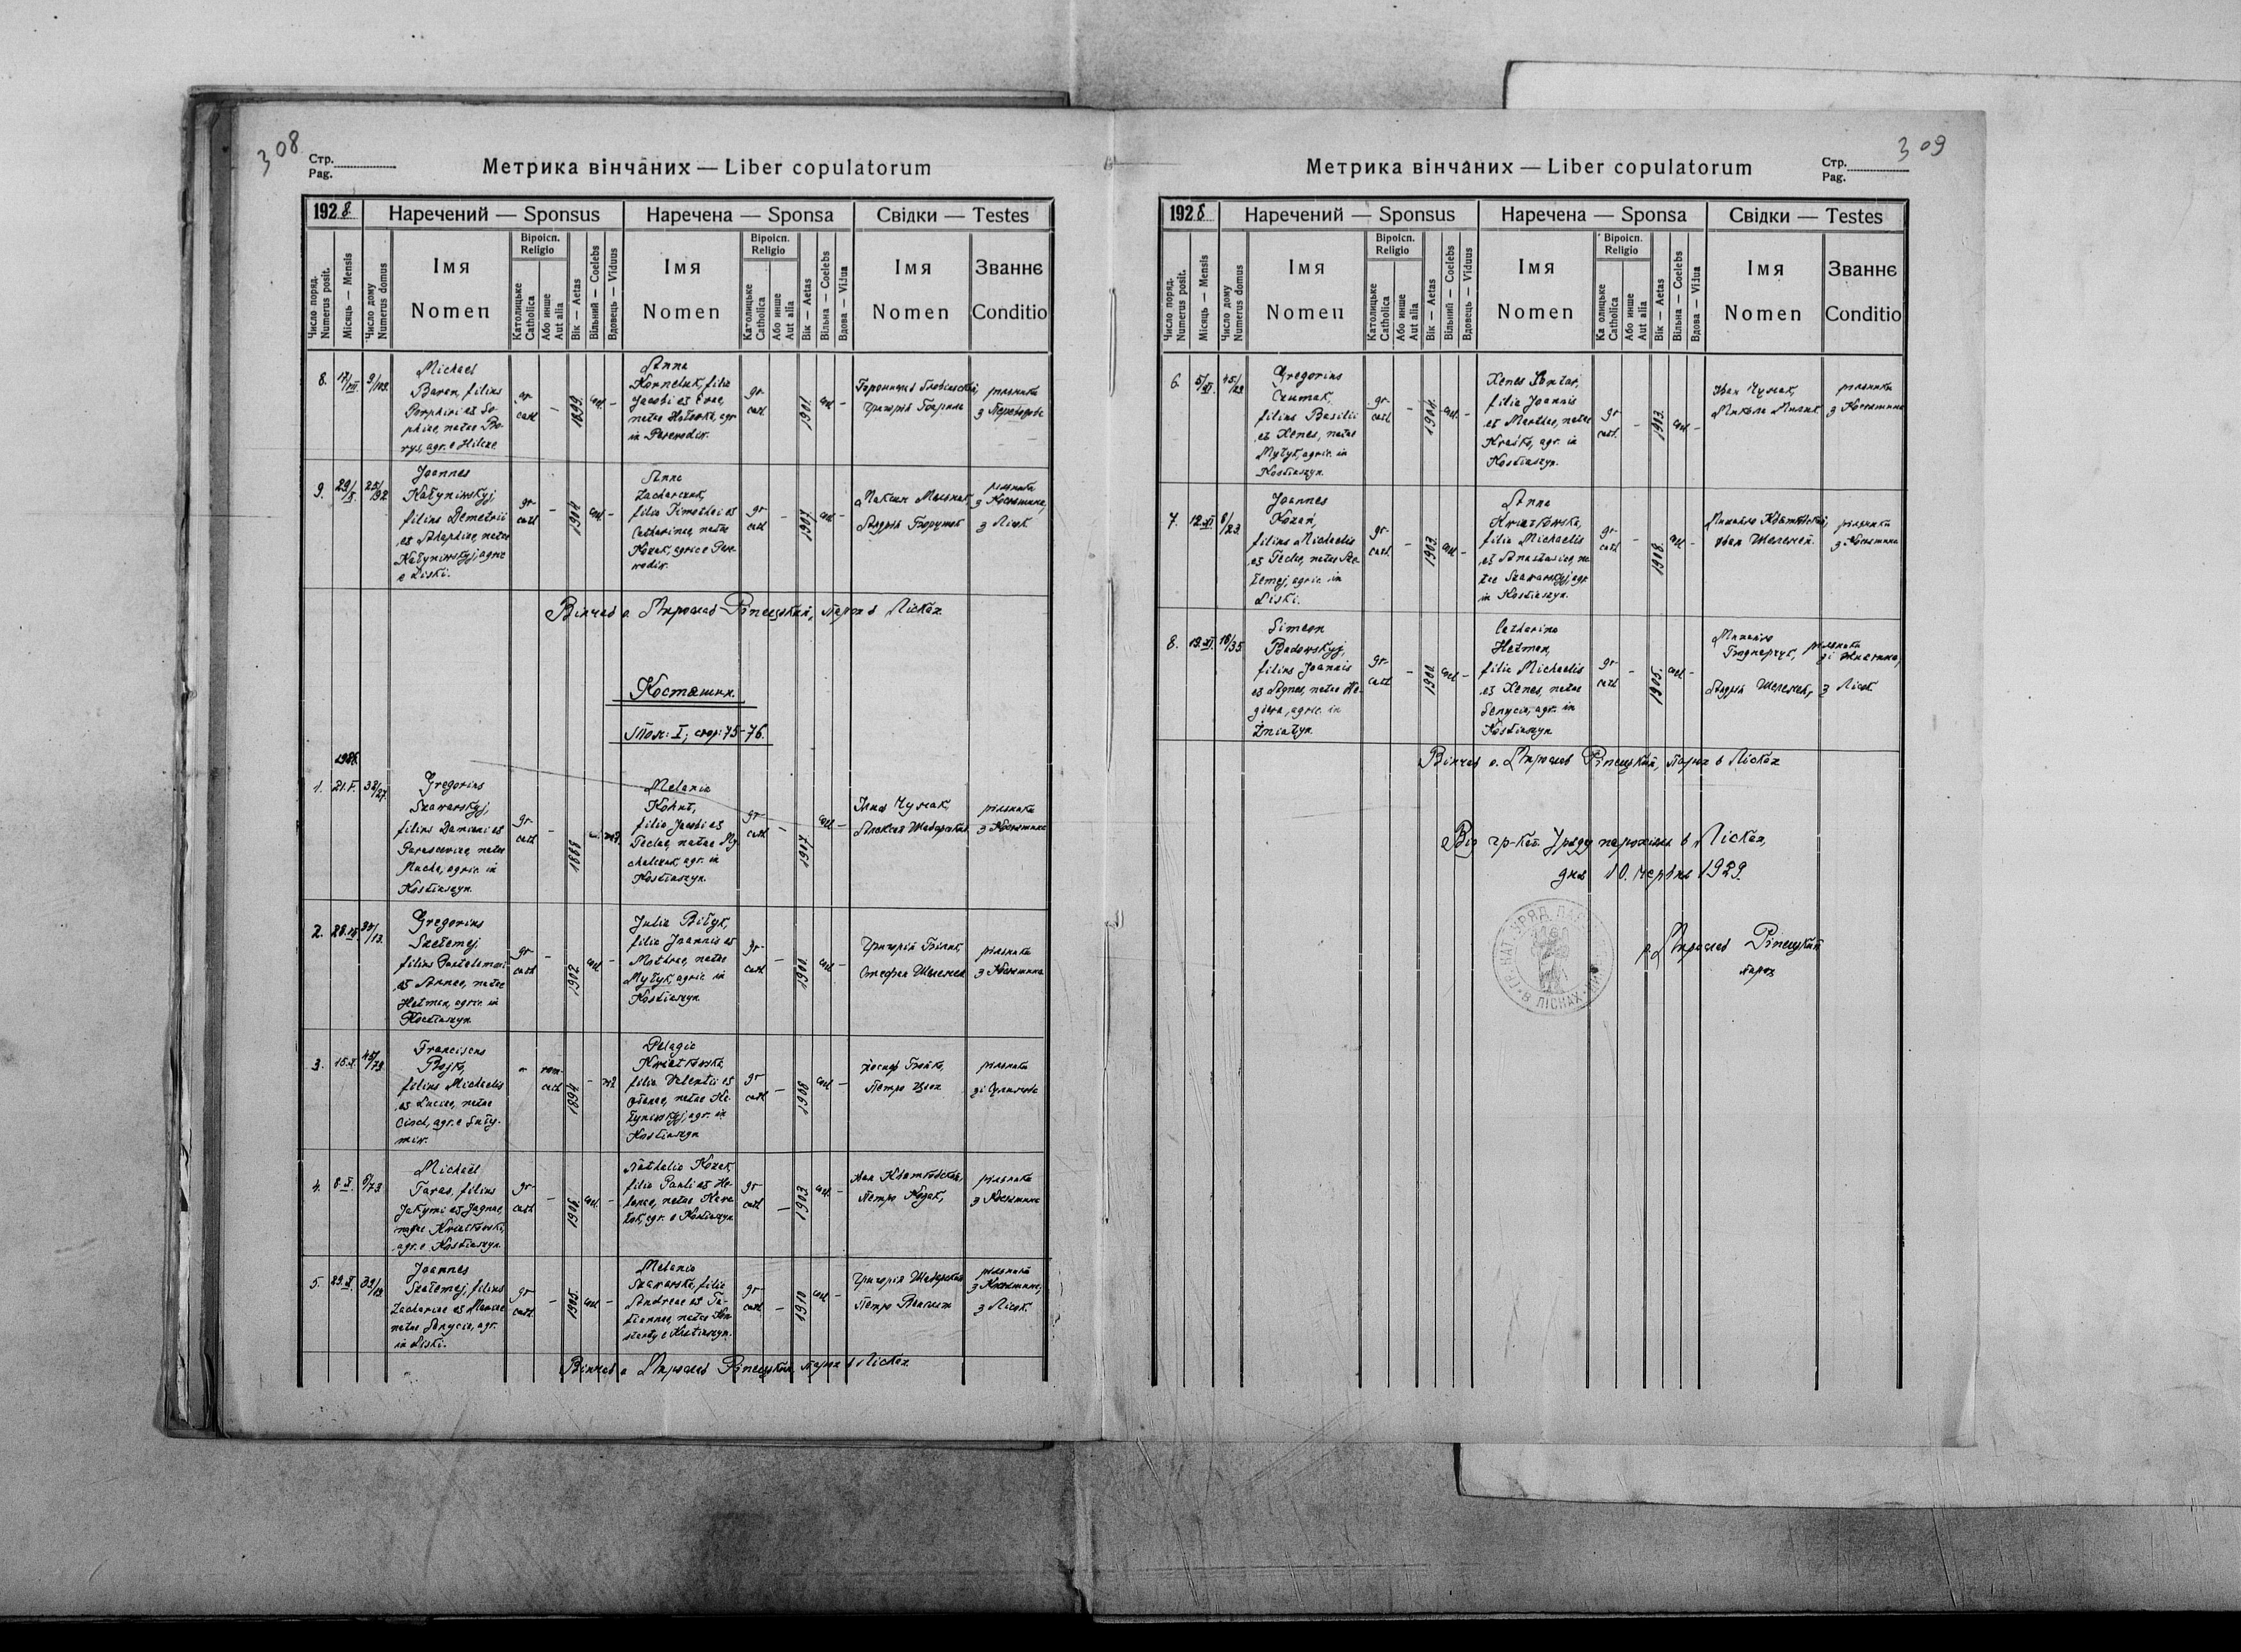 308
Стр.
Pag.
Метрика вінчаних — Liber copulatorum
1928
Наречений — Sponsus
Наречена — Sponsa
Свідки — Testes
Число поряд.
Numerus posit.
Місяць — Mensis
Число дому
Numerus domus
Імя
Nomen
Віроісп.
Religio
Католицьке
Catholica
Або инше
Aut alia
Вік — Aetas
Вільний — Coelebs
Вдовець — Viduus
Імя
Nomen
Віроісп.
Religio
Католицьке
Catholica
Або инше
Aut alia
Вік — Aetas
Вільна — Coelebs
Вдова — Vidua
Імя
Nomen
Званнє
Conditio
8.
9/102
Michael
Baran, filius
Porphiri et So-
phiae, natae Bo-
rys, agr. e Hilcze
gr
cath
—
1899.
coel
—
Anna
Korneluk, filia
Jacobi et Evae,
agr
in Perewodiw.
gr
cath
1901.
coel
—
рільники
з Переводова
9.
29/X.
25/92
Joannes
Kałyniwskyj
filius Demetrii
et Agaphiae, natae
Kałyniwskyj, agric
e Liski.
gr-
cath
—
1904
coel
—
Anna
Zacharczuk,
filia Timothei et
Catharinae, natae
Kozak, agric e Pere-
wodiw.
gr
cath
—
1907.
coel
—
Максим Мельник,
Андрій Борущак
рільники
з Костяшина,
з Лісок
Вінчав о. Мирослав Ріпецький, парох в Лісках
Костяшин.
Том: I; стор: 75-76.
1.
21.V.
32/27.
Gregorius
Szawarskyj,
filius Damiani et
Parasceviae, natae
Mucha, agric. in
Kostiaszyn.
gr-
cath
—
1868
Melania
Kohut,
filia Jacobi et
Teclae, natae My
chalczuk, agr. in
Kostiaszyn.
gr-
cath
—
1907.
coel
—
Ілля Чумак,
Алексій Шаварский
рільники
з Костяшина
2.
Gregorius
Szełemej
filius Pantalemoni
et Annae, natae
Hetman, agric. in
Kostiaszyn
gr
cath
—
1902.
coel
—
Julia Biłyk,
filia Joannis et
Mathrae, natae
Mytyk, agric in
Kostiaszyn
gr-
cath
—
1901.
coel
—
Григорій Білик,
Стефан Шелемей
рільники
з Костяшина
3.
15.X.
45/79.
Franciscus
Bojko,
filius Michaelis
et Luciae, natae
Cioch, agr. e Suły-
miw.
rom-
cath
1894
—
Pelagia
Kwiatkowska,
filia Valentii et
natae Ka-
łyniwskyj, agr. in
Kostiaszyn
gr
cath
—
1900
coel
—
Йосиф Бойко,
Петро Цьох
рільники
зі Сулимова
4.
8.X.
6/73
Michaël
Taras, filius
Jakymi et Jagnae,
natae Kwiatkowski,
agr. e Kostiaszyn.
gr-
cath
—
1906.
coel
—
Nathalia Kozak,
filia Pauli et He-
lenae, natae
agr. e Kostiaszyn
gr
cath
—
1903
coel
—
Іван Квятковский,
Петро Козак,
рільники
з Костяшина
5.
29.X.
39/19
Joannes
Szełemej, filius
Zachariae et Mariae
natae Senycia, agr.
in Liski.
gr
cath.
—
1905.
coel
—
Melania
Szawarska, filia
Andreae et Ta-
tiannae, natae Kon-
stanty e Kostiaszyn.
gr
cath
—
1910
coel
—
Григорій Шаварский
Петро
рільники
з Костяшина,
з Лісок.
Вінчав о. Мирослав Ріпецький парох в Лісках
309
Стр.
Pag.
Метрика вінчаних — Liber copulatorum
1928
Наречений — Sponsus
Наречена — Sponsa
Свідки — Testes
Число поряд.
Numerus posit.
Місяць — Mensis
Число дому
Numerus domus
Імя
Nomen
Віроісп.
Religio
Католицьке
Catholica
Або инше
Aut alia
Вік — Aetas
Вільний — Coelebs
Вдовець — Viduus
Імя
Nomen
Віроісп.
Religio
Ка олицьке
Catholica
Або инше
Aut alia
Вік — Aetas
Вільна — Coelebs
Вдова — Vidua
Імя
Nomen
Званнє
Conditio
6.
5/XI.
45/29.
Gregorius
Czumak,
filius Basilii
et Xenes, natae
Mytyk, agric. in
Kostiaszyn.
gr-
cath
—
1904.
coel
—
Xenes
filia Joannis
et Marthae, natae
Kraśko, agr. in
Kostiaszyn.
gr
cath.
—
1913.
coel
—
Іван Чумак,
Микола
рільники
з Костяшина
7.
12.XI
8/23.
Joannes
Kozak,
filius Michaelis
et Teclae, natae Sze-
łemej, agric. in
Liski.
gr-
cath.
—
1903.
coel
—
Anna
Kwiatkowska,
filia Michaelis
et Anastasiae, na-
tae Szawarskyj, agr.
in Kostiaszyn.
gr-
cath
—
1908.
coel
—
Михайло Квятковский,
Іван Шелемей.
рільники
з Костяшина
8.
19.XI.
18/35
Simeon
Badowskyj,
filius Joannis
et Agnes, natae
agric. in
Żniatyn
gr-
cath
—
1900.
coel
—
Catharina
Hetman,
filia Michaelis
et Xenes, natae
Senycia, agr. in
Kostiaszyn
gr-
cath
—
1905.
coel
—
Михайло
Боднарчук,
Андрій Шелемей,
рільники
зі Жнятина,
з Лісок.
Вінчав о. Мирослав Ріпецький, парох в Лісках
Від гр-кат. Уряду парохіяль. в Лісках,
дня 10. червня 1929.
о. Мирослав Ріпецький
парох
В ЛІСКАХ